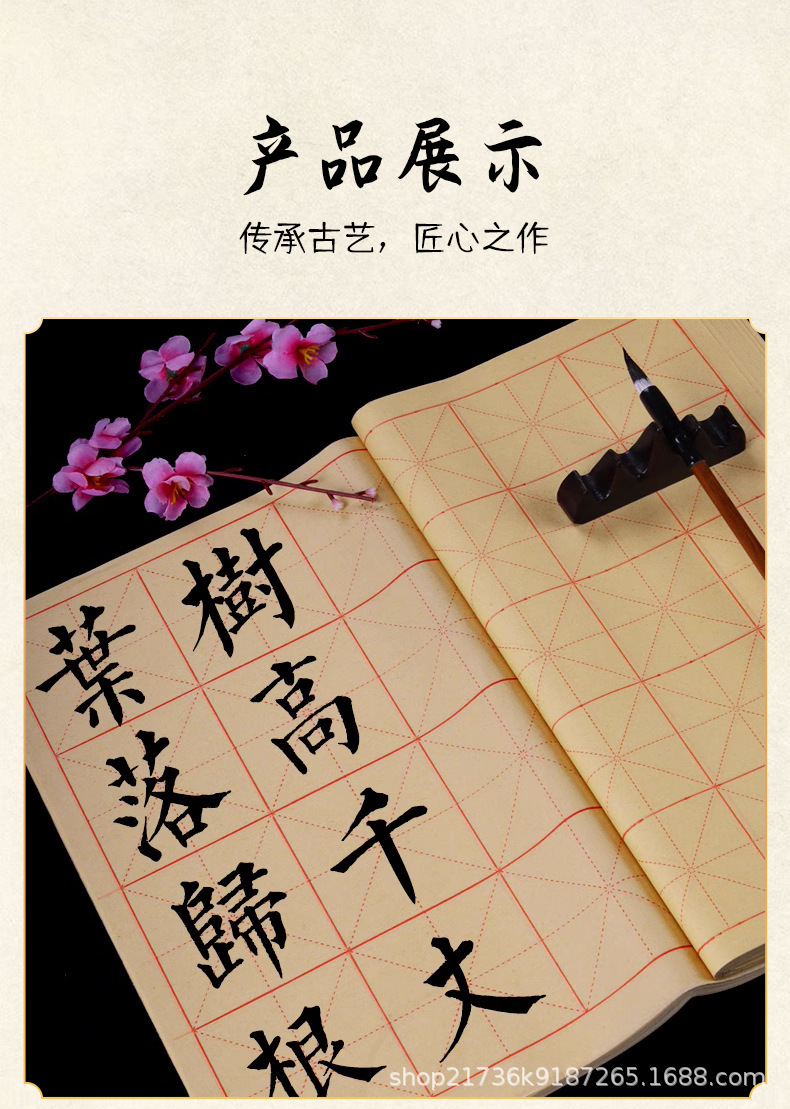 产品展示
传承古艺，匠心之作
樹高千丈
葉落歸根
shop21736k9187265.1688.com